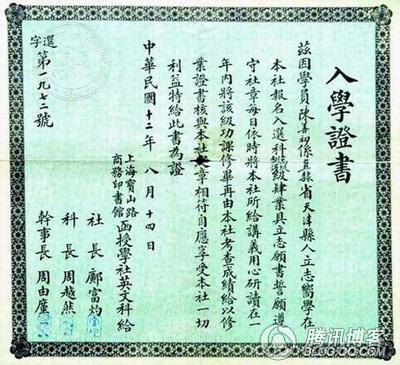 入學證書
茲因學員陳善初係直隸省天津縣人立志嚮學在
本社報名入選科 級肄業具立志願書誓願遵
守社章每日依時將本社所給講義用心研讀在一
年內將該級功課修畢再由本社考查成績給以修
業證書核與本社 章相符自應享受本社一切
利益特給此書為證
中華民國十二年八月十四日
上海寶山路
商務印書館
函授學社英文科給
社長鄺富灼
科長周越然
幹事長周由廑
選字第一九七二號
腾讯博客
BLOG.QQ.COM